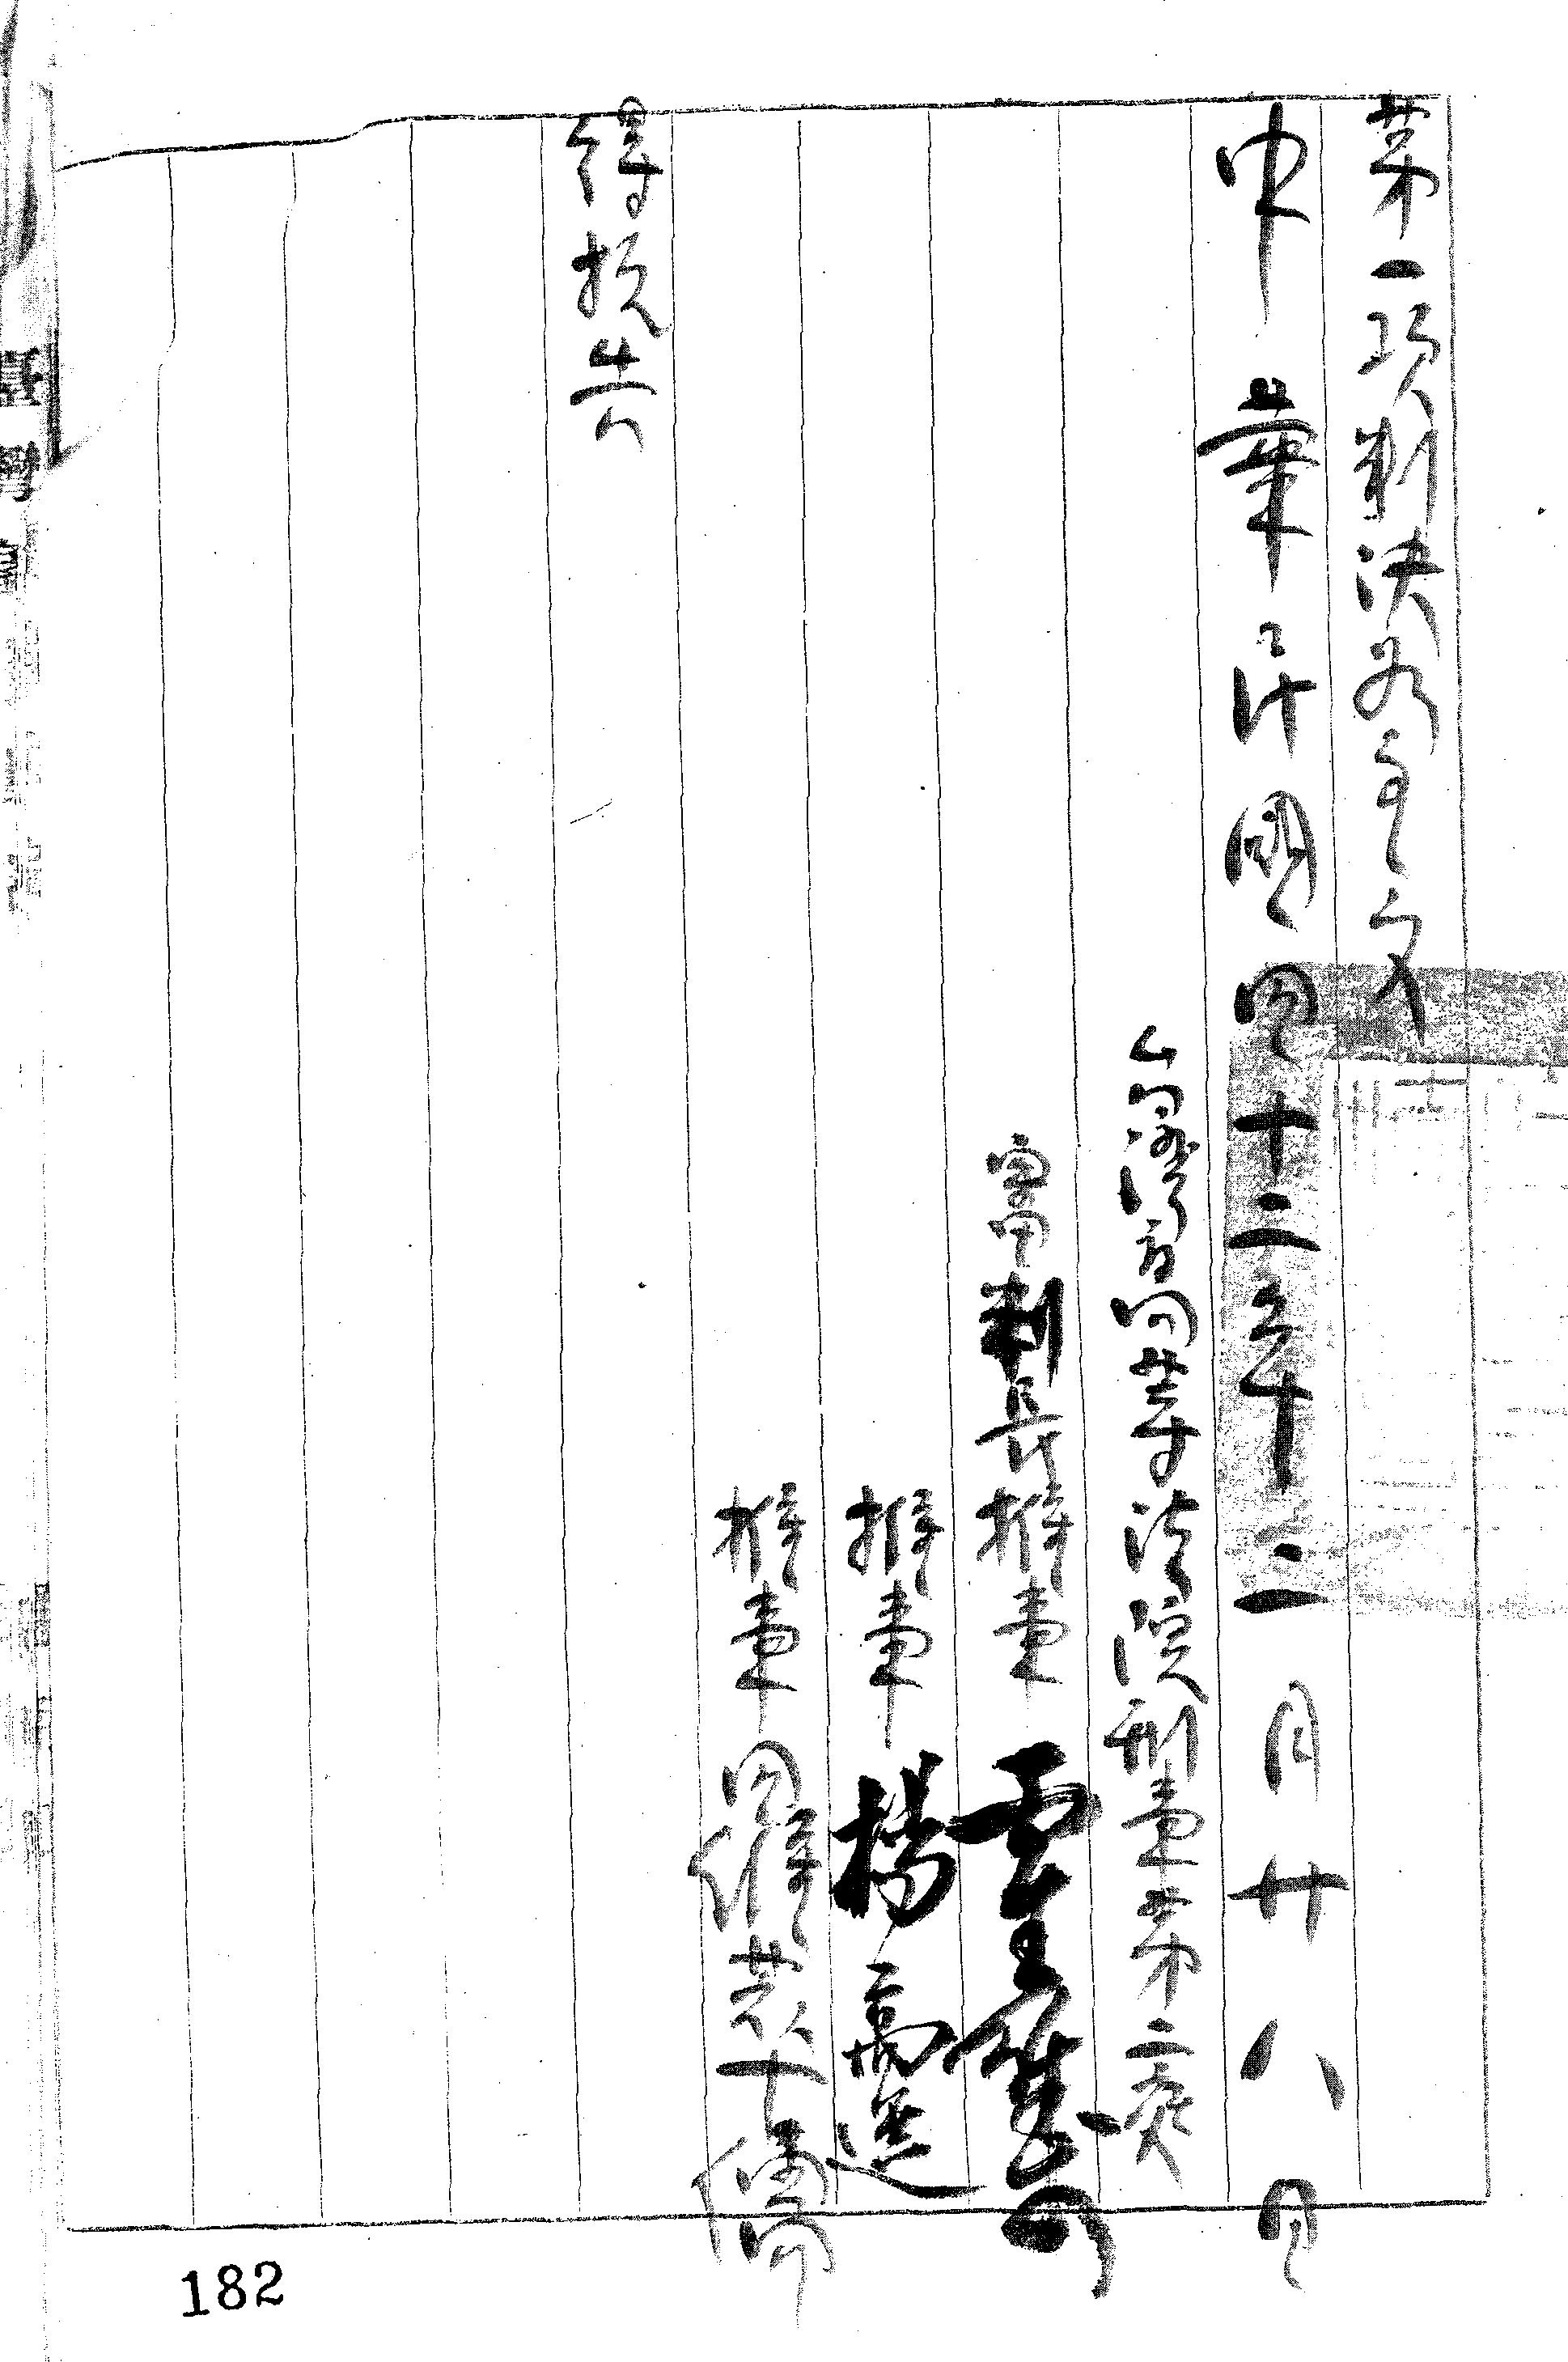 第一項判決如主文
中華民國四十三年二月廿八日
台灣高等法院刑事第二庭
審判長推事
推事 楊
推事
得抗告
182